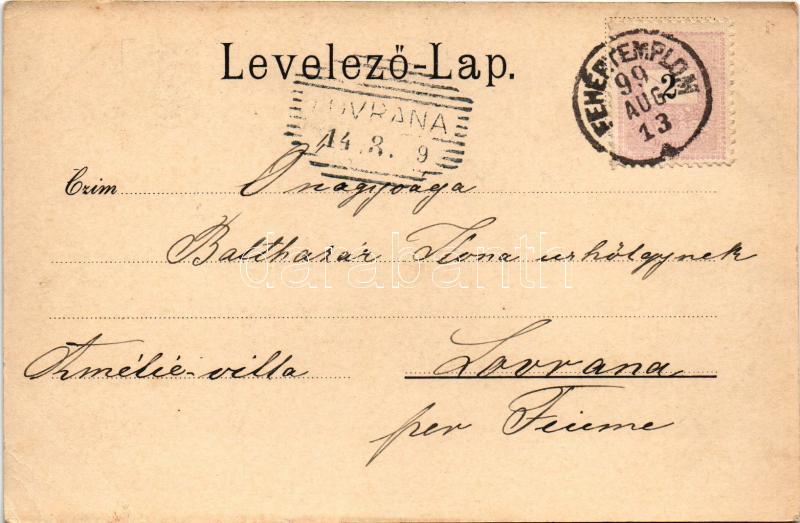 Levelező-Lap.
FEHÉRTEMPLOM
99
AUG
13
2
LOVRANA
14.8. 9
Czim Őnagysága
Balthazár Ilona urhölgynek
darabanth
Amélie-villa
Lovrana
per Fiume